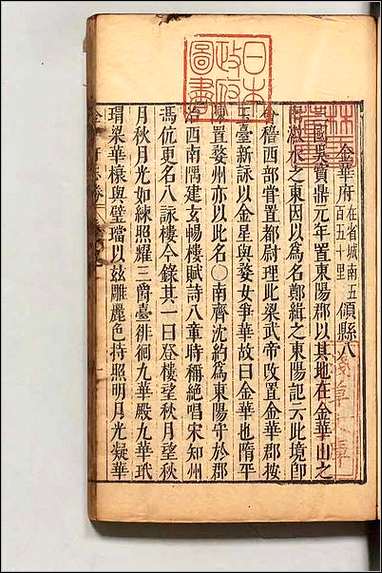 日本
政府
圖書
金華府在省城南五百五十里領縣八
吳寶鼎元年置東陽郡以其地在金華山之
水之東因以為名鄭緝之東陽記云此境即
會稽西部嘗置都尉理此梁武帝改置金華郡按
玉臺新詠以金星與婺女爭華故曰金華也隋平
陳置婺州亦以此名○南齊沈約為東陽守於郡
治西南隅建玄暢樓賦詩八章時稱絶唱宋知州
馮伉更名八詠樓今錄其一曰登樓望秋月望秋
月秋月光如練照耀三爵臺徘徊九華殿九華玳
瑁梁華榱與璧璫以玆雕麗色持照明月光凝華